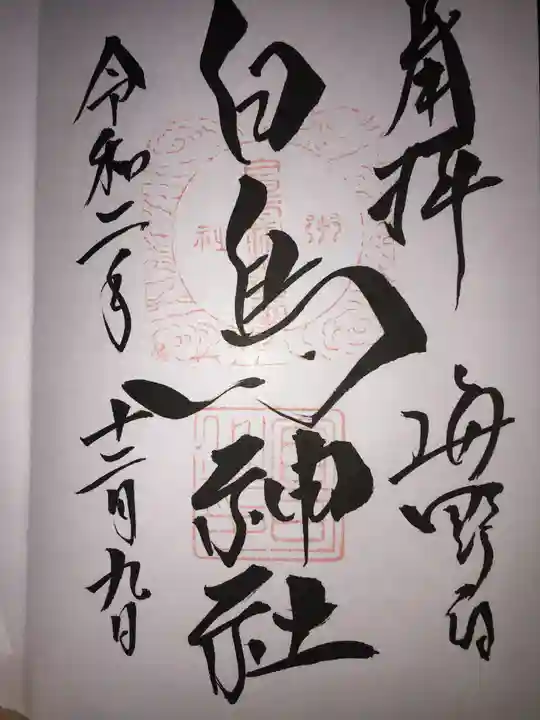 奉拝
海野宿
白鳥神社
令和二年
十二月九日